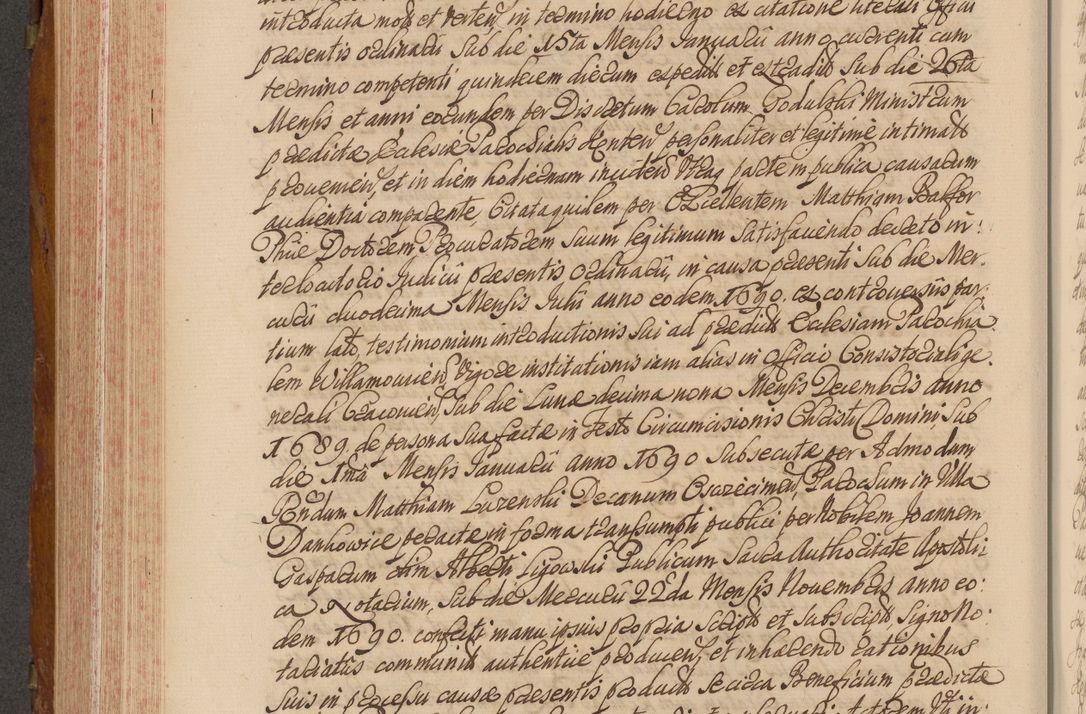 introducta mott et verten, in termino hodierno ex citatione literali Officii
præsentis ordinarii sub die 15ta Mensis Januarii anno currenti cum
termino competenti quindecem dierum expedit et extradit sub die 26ta
Mensis et anni eorundem per Discretum Carolum Godulski Ministrum
prædictæ Ecclesiæ Parochialis Kenten, personaliter et legitimè intimatt
provenien, et in diem hodiernam inciden, Utraq parte in publica causarum
audientia comparente, Citata quidem per Excellentem Matthiam Baffor
Phiæ Doctorem Procuratorem suum legitimum satisfaciendo decreto in:
terlocutorio Judicii præsentis Ordinarii, in causa præsenti sub die Mer:
curii duodecima Mensis Julii anno eodem 1690. ex controversiis par:
tium lato, testimonium introductionis sui ad prædict Ecclesiam Parochia:
lem Willamovicien, vigore institutionis iam alias in Officio Consistoriali ge:
nerali Cracovien, sub die Lunæ decima nona Mensis Decembris anno
1689. de persona sua factæ in Festo Circumcisionis Christi Domini, sub
die 1ma Mensis Januarii anno 1690 subsecutæ per Admodum
Rndum Matthiam Luzenski Decanum Oswiecimen, Parochum in Villa
Dankowice peractæ in forma transumpti publici per Nobilem Joannem
Gasparum olim Alberti Ligowski Publicum Sacra Authoritate Apostoli:
ca Notarium, sub die Mercurii 22da Mensis Novembris anno eo:
dem 1690. confecti manu ipsius propria script et subscript signo No:
tariatus communit authenticè producen, et inhærendo rationibus
suis in processu causæ præsentis product se circa Beneficium prædictæ